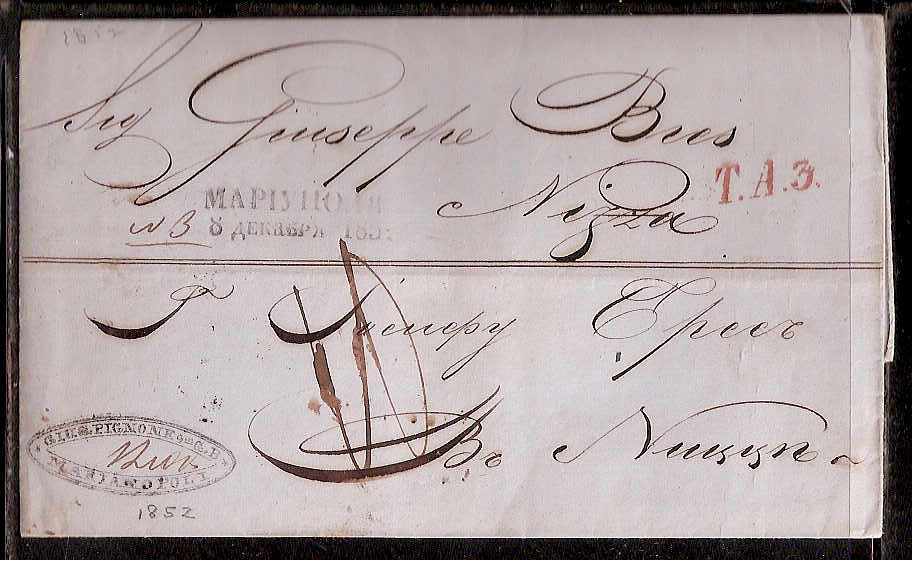 1852
Sig Giuseppe Bres
Nizza
T.A.3.
МАРІУПОЛЯ
8 ДЕКАБРЯ 185
N 3
Г. Іосифу Бресъ
Въ Ниццѣ
GIUS. PIGNONE
MARIANOPOLI
1852